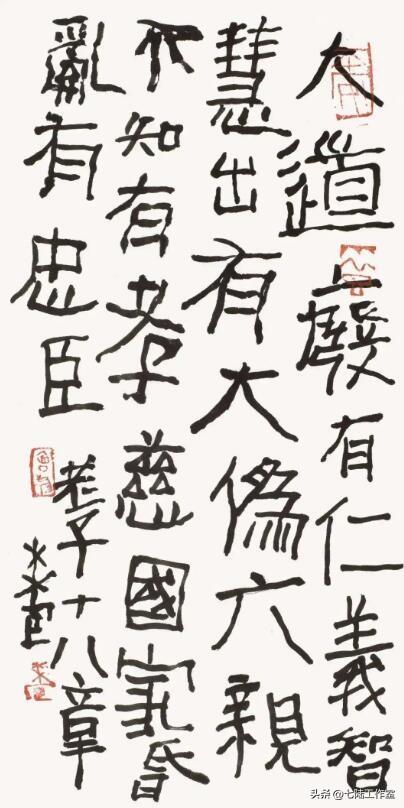 大道廢有仁義智
慧出有大偽六親
不知有孝慈國家昏
亂有忠臣
老子十八章
头条 @七陆工作室